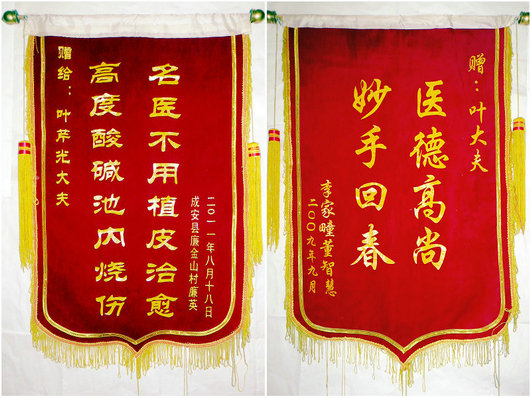 赠给：叶芹光大夫
高度酸碱池内烧伤
名医不用植皮治愈
成安县廉金山村廉英
二〇一一年八月十八日
赠：叶大夫
医德高尚
妙手回春
李家疃董智慧
二〇〇九年九月